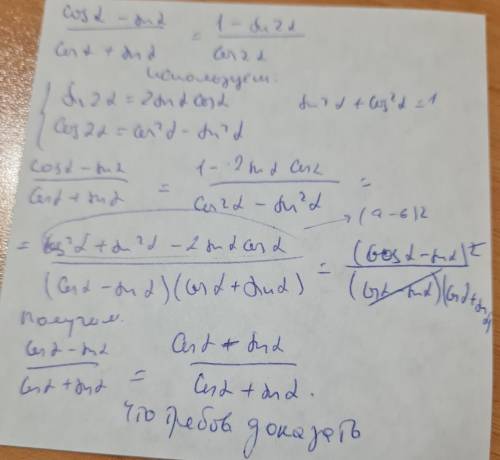 cosα - sinα / cosα + sinα = 1 - sin2α / cos2α
используем:
{ sin2α = 2sinα cosα sin²α + cos²α = 1
cos2α = cos²α - sin²α
cosα - sinα / cosα + sinα = 1 - 2sinα cosα / cos²α - sin²α =
= cos²α + sin²α - 2sinα cosα / (cosα - sinα)(cosα + sinα) = (cosα - sinα)² / (cosα - sinα)(cosα + sinα) → (a - b)2
получаем.
cosα - sinα / cosα + sinα = cosα - sinα / cosα + sinα.
что требов доказать